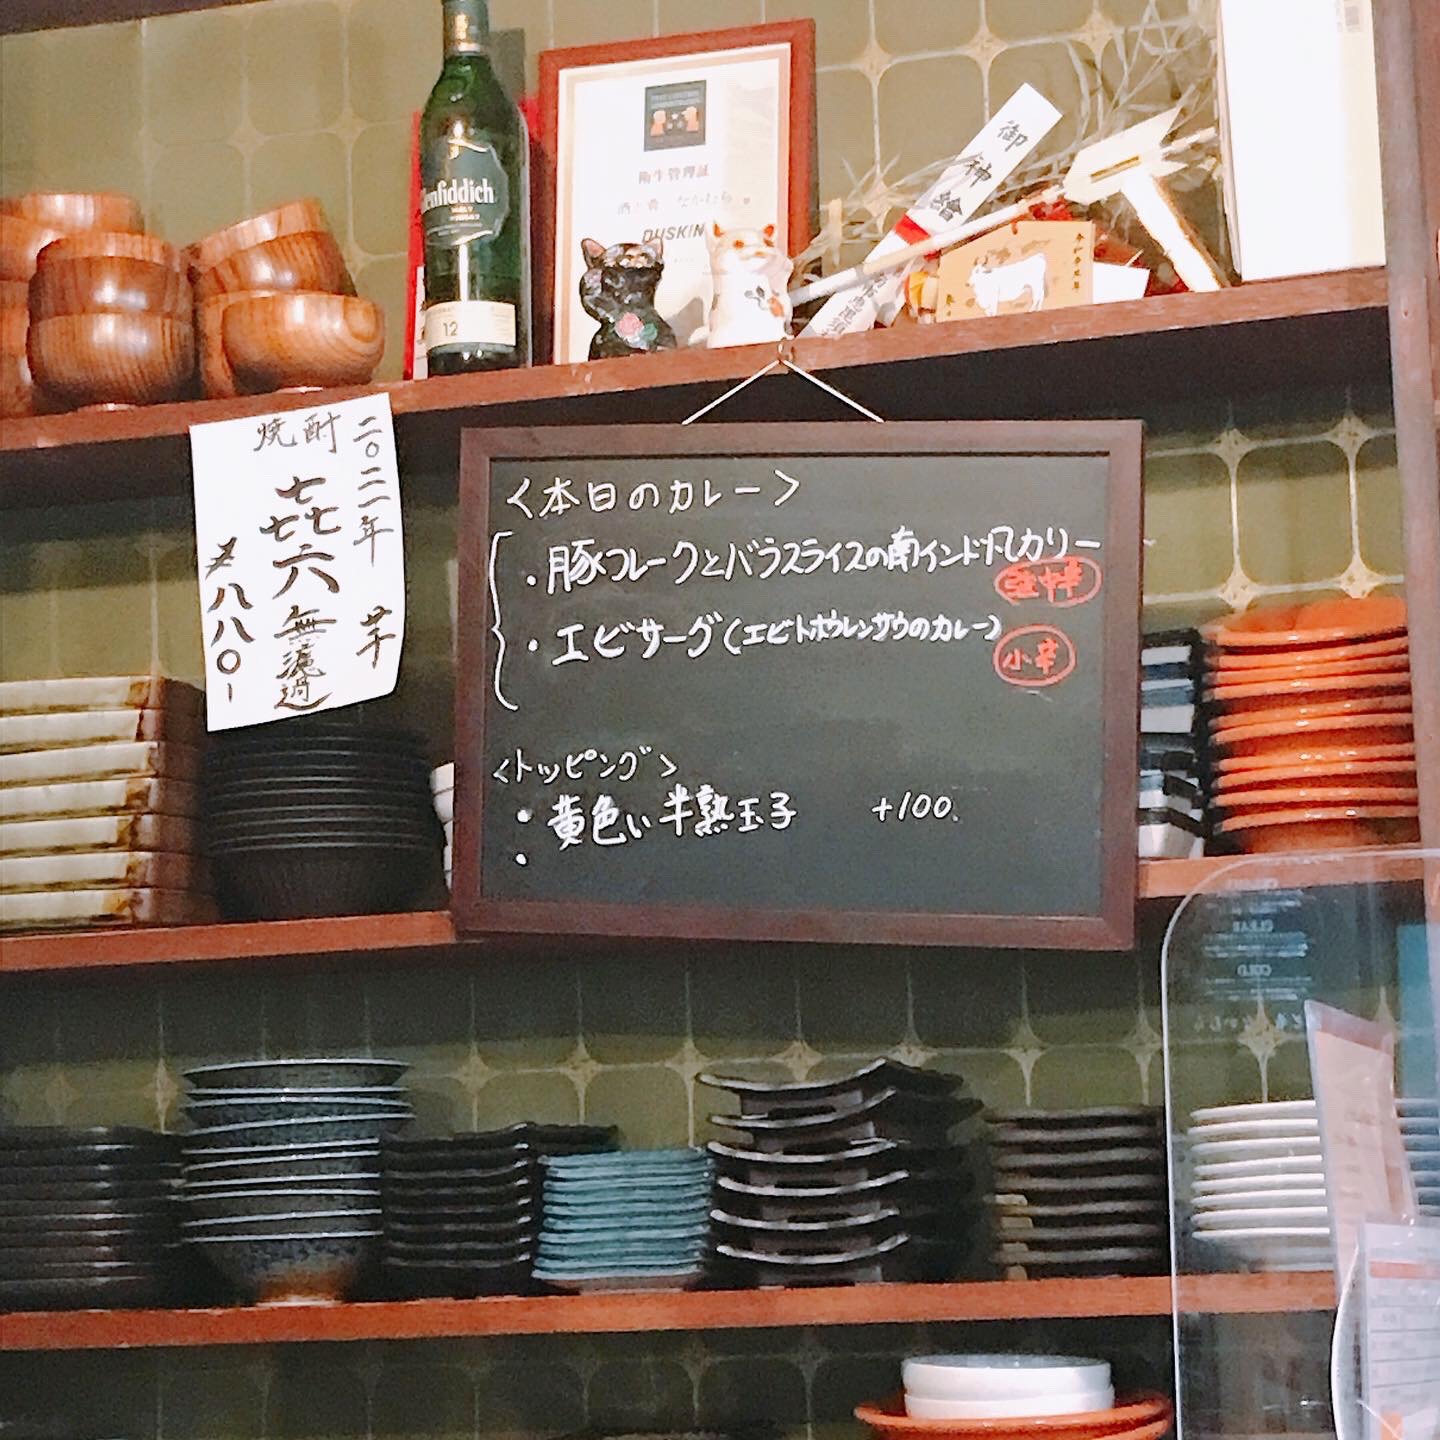 Glenfiddich
12
衛生管理証
酒と肴 なかむら
DUSKIN
御神繪
二〇二一年 芋
焼酎
㐂六 無濾過
八八〇-
<本日のカレー>
・豚フレークとバラスライスの南インド風カリー
中辛
・エビサーグ(エビトホウレンソウのカレー)
小辛
<トッピング>
・黄色い半熟玉子 +100.
・
CLEAR
COLD